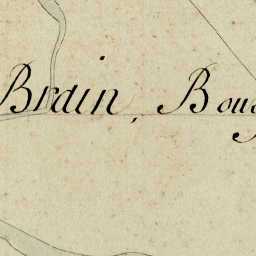 Brain, Boug